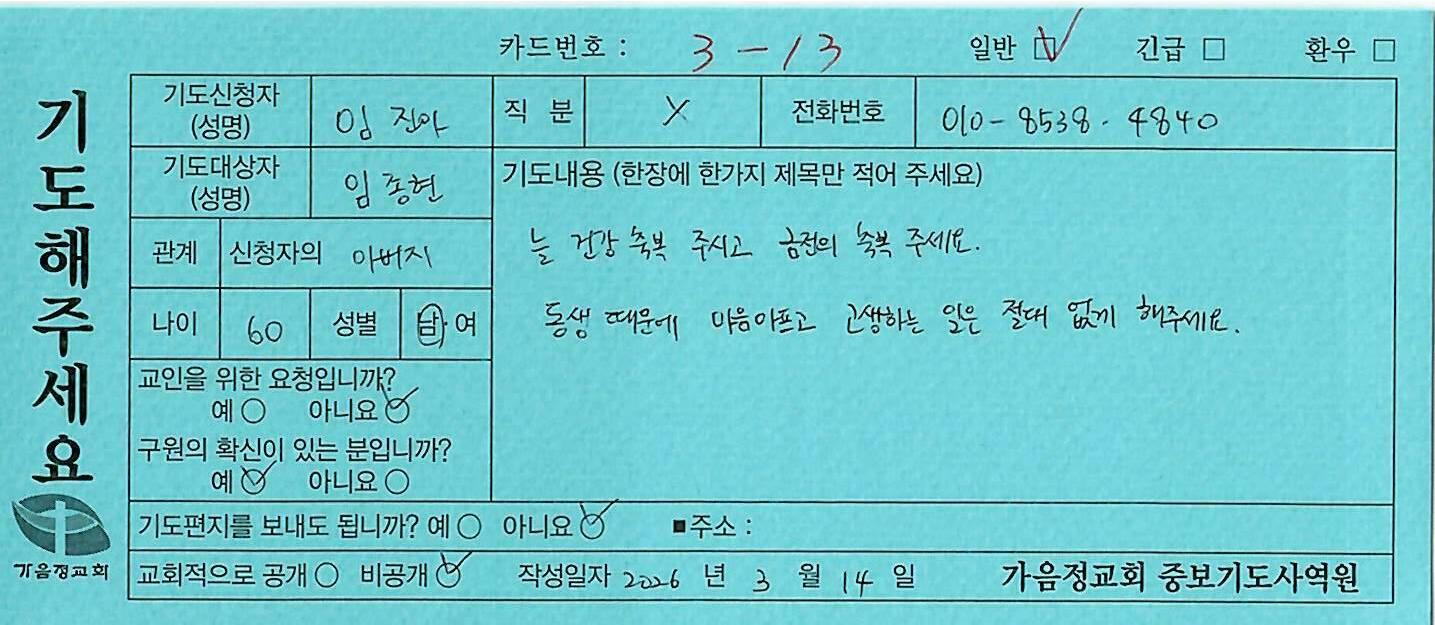 카드번호 : 3 - 13 일반 □ 긴급 □ 환우 □
기도해주세요
가음정교회
기도신청자 (성명) 임진아 직 분 X 전화번호 010-8538-4840
기도대상자 (성명) 임종현
관계 신청자의 아버지
나이 60 성별 남·여
교인을 위한 요청입니까?
예 ○ 아니요 ○
구원의 확신이 있는 분입니까?
예 ○ 아니요 ○
기도내용 (한장에 한가지 제목만 적어 주세요)
늘 건강 축복 주시고 금전의 축복 주세요.
동생 때문에 마음아프고 고생하는 일은 절대 없게 해주세요.
기도편지를 보내도 됩니까? 예 ○ 아니요 ○ ■주소 :
교회적으로 공개 ○ 비공개 ○ 작성일자 2026 년 3 월 14 일 가음정교회 중보기도사역원